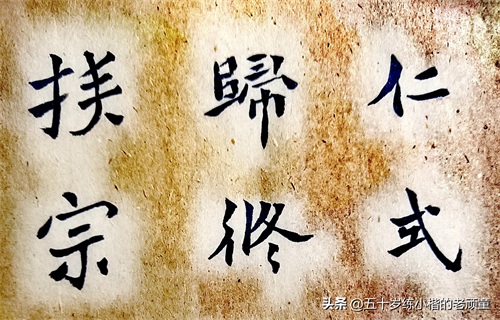 仁式
歸
宗
头条 @五十岁练小楷的老顽童